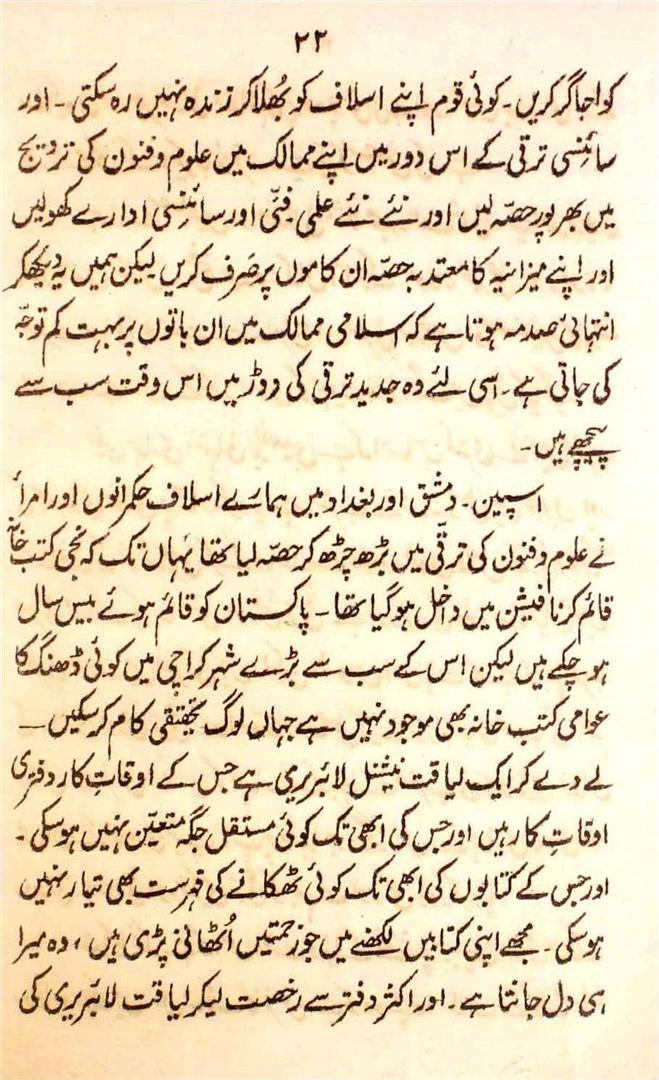 ۲۲
کو اجاگر کریں۔ کوئی قوم اپنے اسلاف کو بھُلا کر زندہ نہیں رہ سکتی۔ اور
سائنسی ترقی کے اس دور میں اپنے ممالک میں علوم و فنون کی ترویج
میں بھرپور حصّہ لیں اور نئے نئے علمی فنّی اور سائنسِی ادارے کھولیں
اور اپنے میزانیہ کا معتدبہ حصّہ ان کاموں پر صَرف کریں لیکن ہمیں یہ دیکھکر
انتہائی صدمہ ہوتا ہے کہ اسلامی ممالک میں ان باتوں پر بہت کم توجّہ
کی جاتی ہے۔ اسی لئے وہ جدید ترقی کی دوڑ میں اس وقت سب سے
پیچھے ہیں۔
اسپین۔ دمشق اور بغداد میں ہمارے اسلاف حکمرانوں اور امرأ
نے علوم و فنون کی ترقّی میں بڑھ چڑھ کر حصّہ لیا تھا یہاں تک کہ نجی کتب خانے
قائم کرنا فیشن میں داخل ہو گیا تھا۔ پاکستان کو قائم ہوئے بیس سال
ہو چکے ہیں لیکن اس کے سب سے بڑے شہر کراچی میں کوئی ڈھنگ کا
عوامی کتب خانہ بھی موجود نہیں ہے جہاں لوگ تحقیقی کام کر سکیں۔
لے دے کر ایک لیاقت نیشنل لائبریری ہے جس کے اوقاتِ کار دفتری
اوقاتِ کار ہیں اور جس کی ابھی تک کوئی مستقل جگہ متعیّن نہیں ہو سکی۔
اور جس کے کتابوں کی ابھی تک کوئی ٹھکانے کی فہرست بھی تیار نہیں
ہو سکی۔ مجھے اپنی کتابیں لکھنے میں جو زحمتیں اُٹھانی پڑی ہیں، وہ میرا
ہی دل جانتا ہے۔ اور اکثر دفتر سے رخصت لیکر لیاقت لائبریری کی